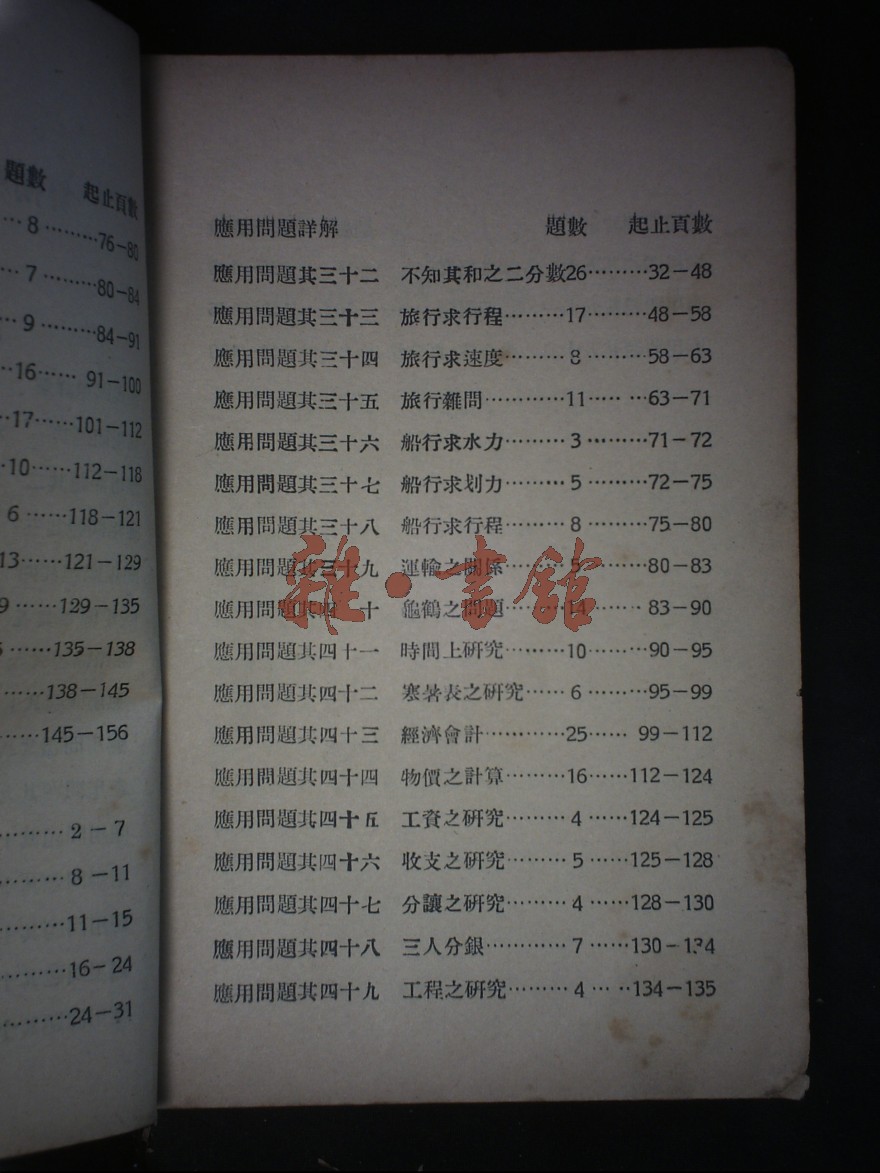 題數 起止頁數
8………76-80
7………80-84
9………84-91
16……91-100
17……101-112
10……112-118
6……118-121
13……121-129
9……129-135
……135-138
……138-145
……145-156
………2-7
………8-11
………11-15
………16-24
………24-31
應用問題詳解 題數 起止頁數
應用問題其三十二 不知其和之二分數26………32-48
應用問題其三十三 旅行求行程………17………48-58
應用問題其三十四 旅行求速度………8………58-63
應用問題其三十五 旅行雜問…………11……63-71
應用問題其三十六 船行求水力………3………71-72
應用問題其三十七 船行求划力………5………72-75
應用問題其三十八 船行求行程………8………75-80
應用問題其三十九 運輸之關係………5………80-83
應用問題其四 十 龜鶴之問題………14……83-90
應用問題其四十一 時間上研究………10………90-95
應用問題其四十二 寒暑表之研究……6………95-99
應用問題其四十三 經濟會計…………25……99-112
應用問題其四十四 物價之計算………16……112-124
應用問題其四十五 工資之研究………4……124-125
應用問題其四十六 收支之研究………5……125-128
應用問題其四十七 分讓之研究………4……128-130
應用問題其四十八 三人分銀…………7……130-134
應用問題其四十九 工程之研究………4……134-135
雜·書館